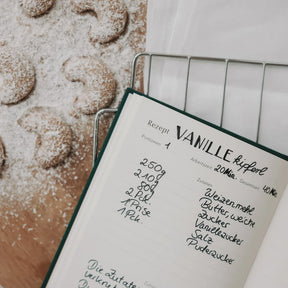 Rezept VANILLE Kipferl
Portionen 1 Arbeitszeit 20Min. Gesamtzeit 40Min.
Zutaten
250g Weizenmehl
210g Butter, weiche
50g Zucker
2 Pck. Vanillezucker
1 Prise Salz
1 Pck. Puderzucker
Die Zutaten